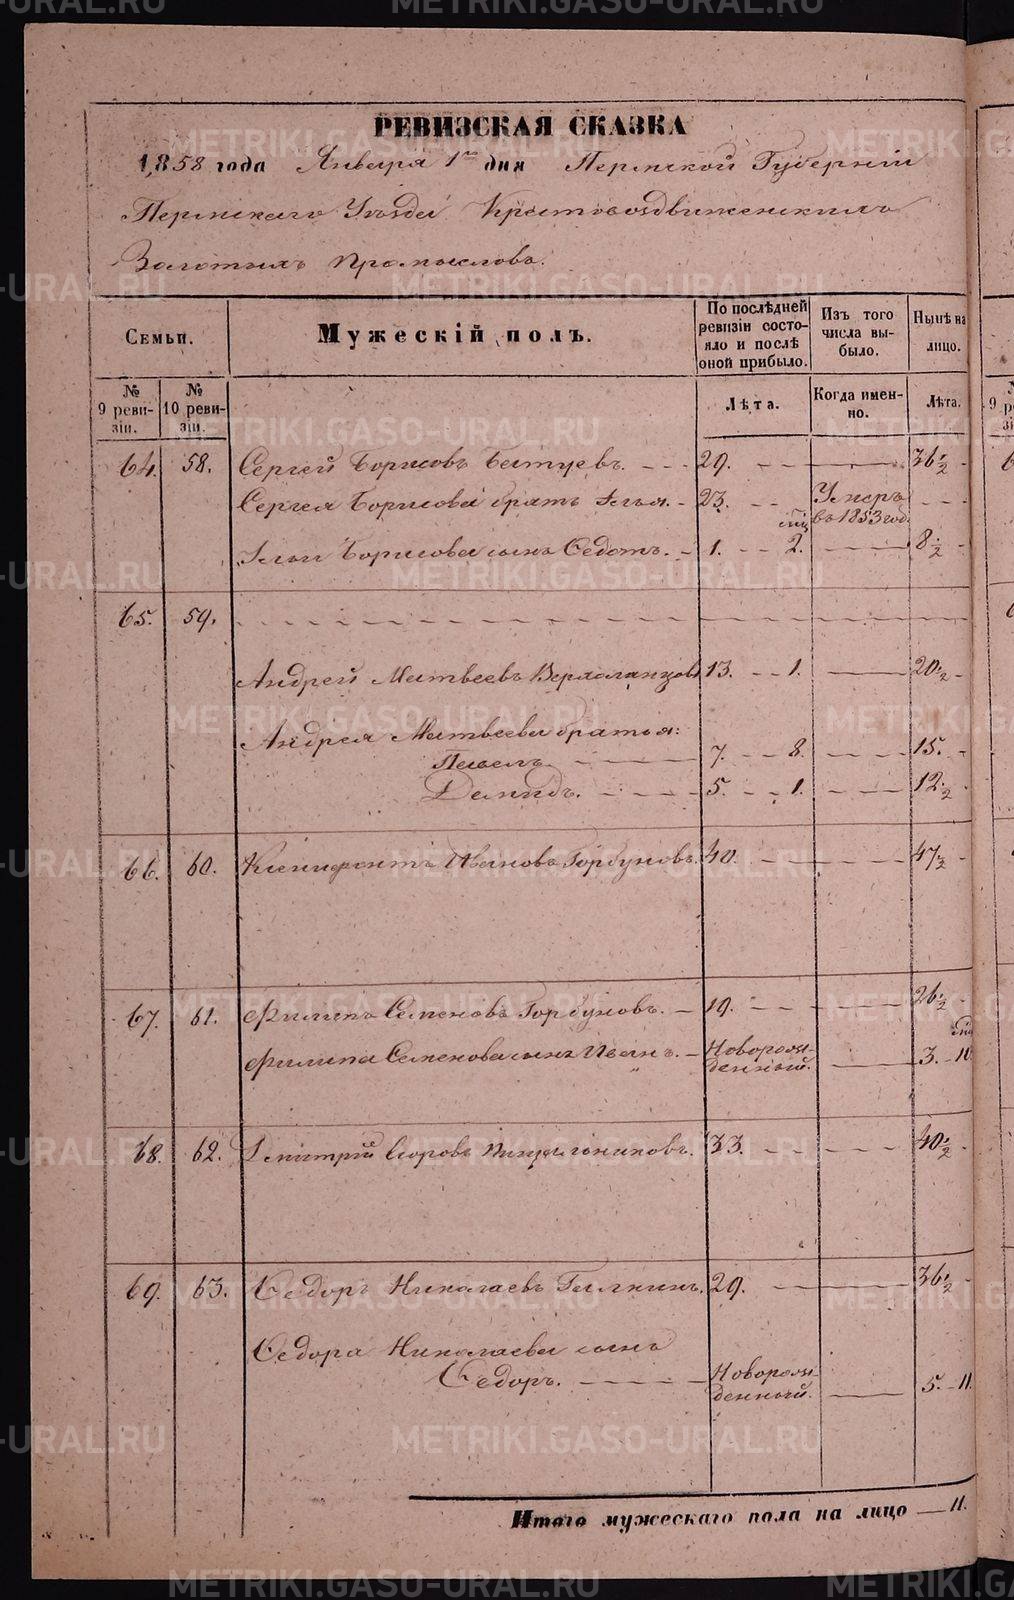 РЕВИЗСКАЯ СКАЗКА
1858 года Января 1го дня Пермской Губерніи
Пермскаго Уѣзда Крестовоздвиженскихъ
Золотыхъ Промысловъ.
Семьи. Мужескій полъ. По послѣдней ревизіи состояло и послѣ оной прибыло. Изъ того числа выбыло. Нынѣ на лицо.
№ 9 ревизіи. № 10 ревизіи. Лѣта. Когда именно. Лѣта.
64. 58. Сергей Борисовъ 29. 36 1/2
Сергея Борисова братъ Илья. 23. Умеръ въ 1853 год.
Ильи Борисова сынъ Федотъ. 1. мц 2. 8 1/2
65. 59.
Андрей Матвеевъ Верхоланцовъ 13. 1. 20 1/2
Андрея Матвеева братья:
Павелъ 7. 8. 15.
Демидъ. 5. 1. 12 1/2
66. 60. Ксенифонтъ Ивановъ Горбуновъ. 40. 47 1/2
67. 61. Филипъ Семеновъ Горбуновъ. 19. 26 1/2
Филипа Семенова сынъ Иванъ. Новорожденный. 3. мц 10
68. 62. Дмитрій 33. 40 1/2
69. 63. Федоръ Николаевъ Галкинъ. 29. 36 1/2
Федора Николаева сынъ
Федоръ. Новорожденный. 5. 11.
Итого мужескаго пола на лицо 11.
METRIKI.GASO-URAL.RU